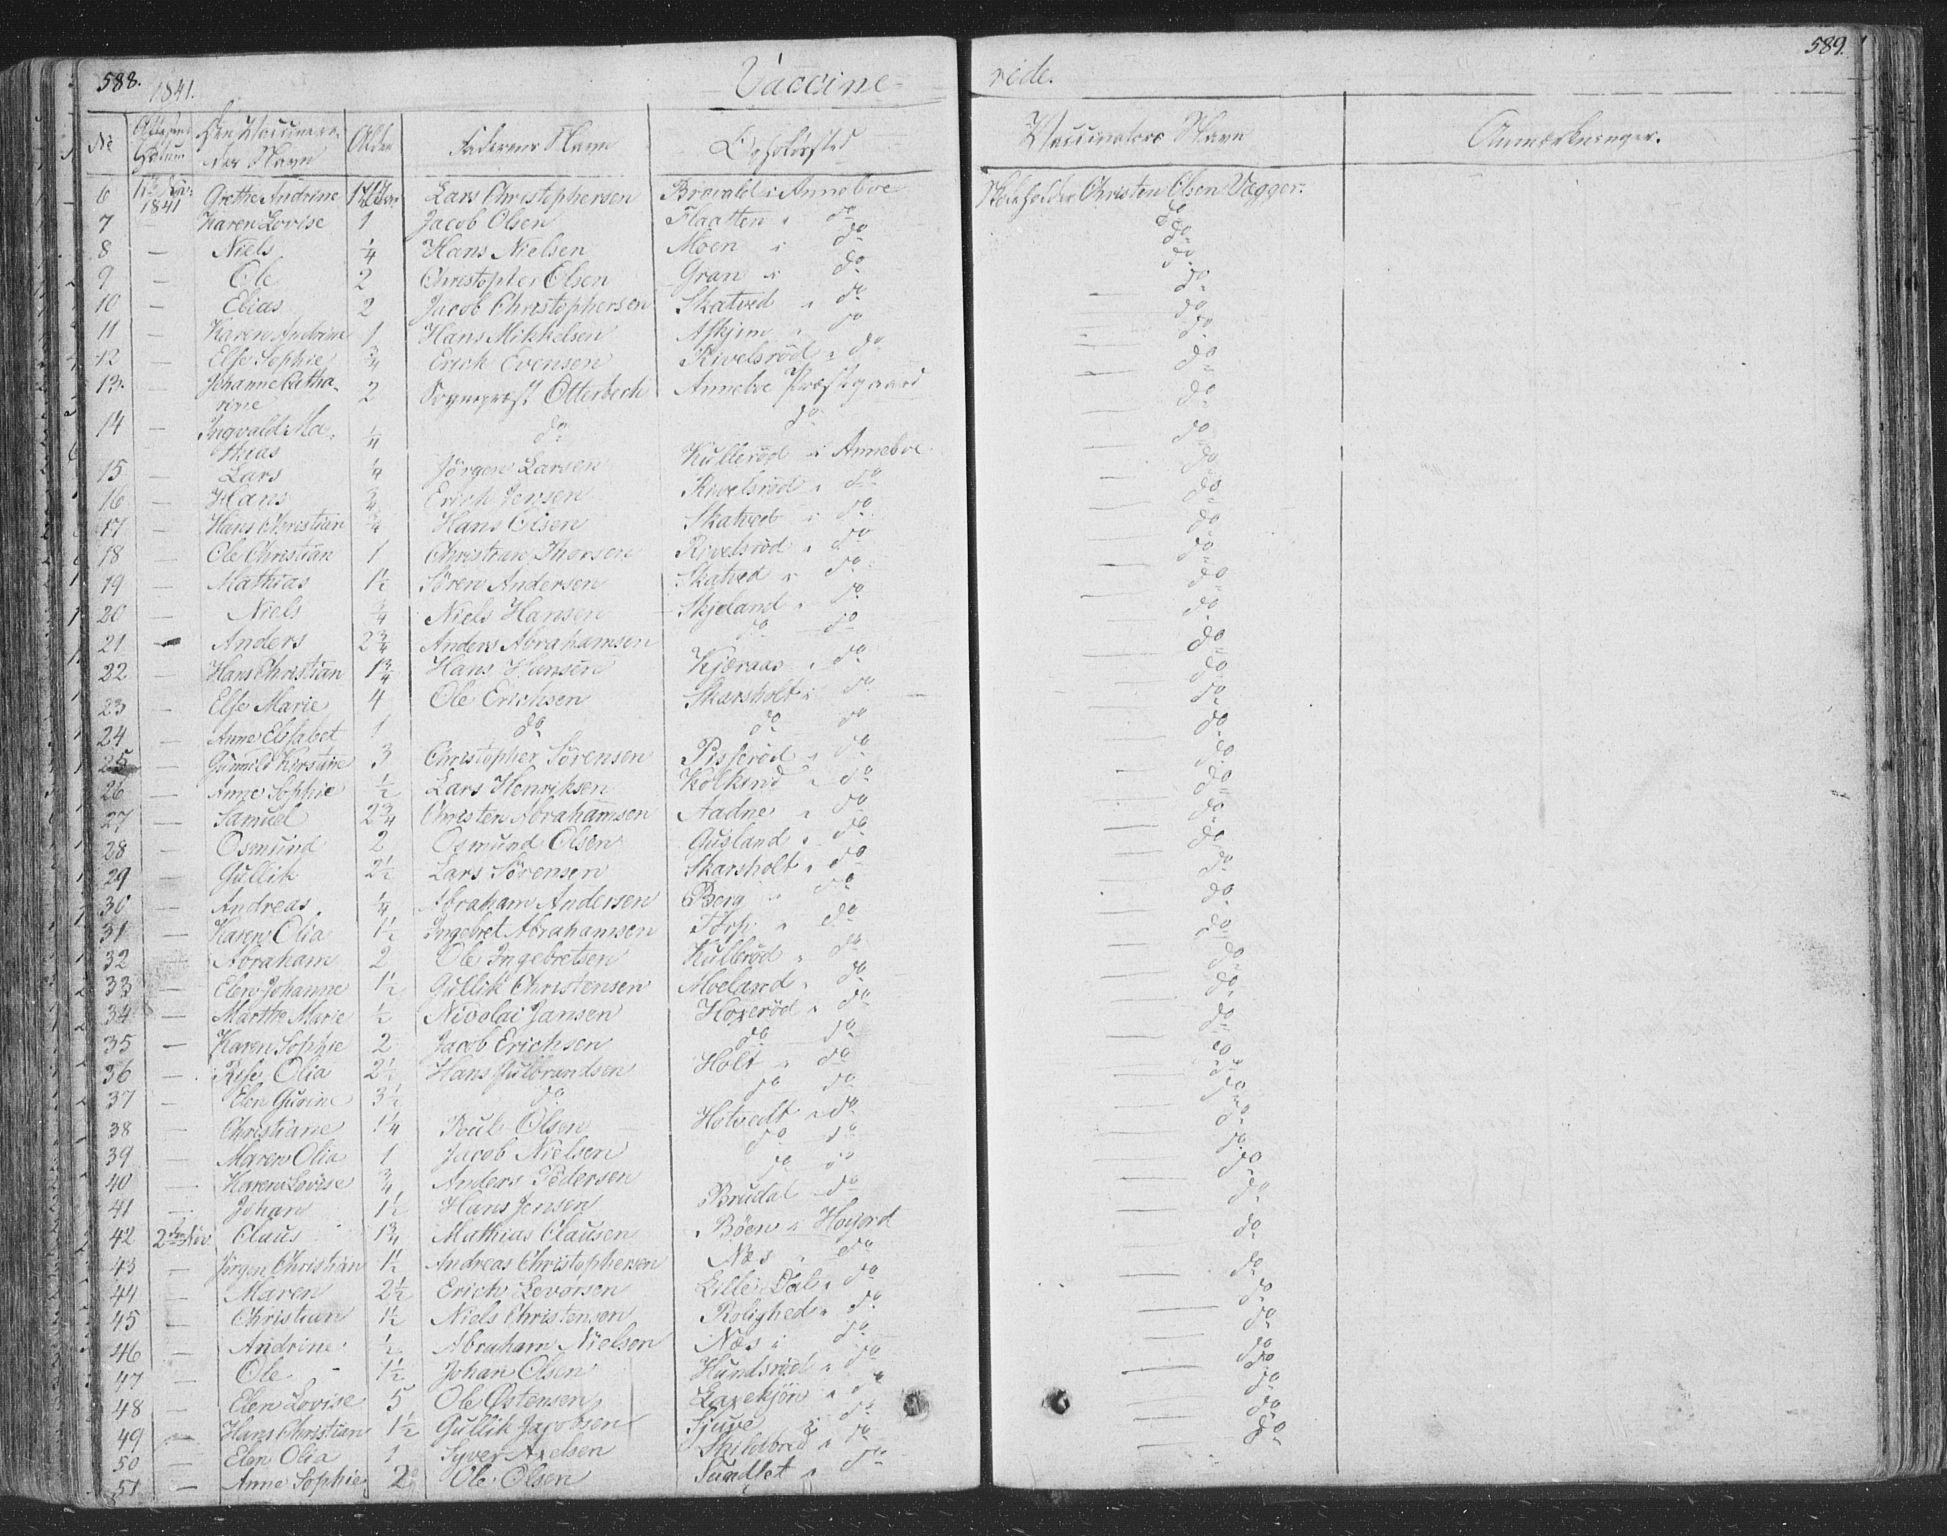 588.
1841.
Vaccine-
rede.
589.
No Attestens Datum Den Vaccinere- des Navn Alder Faderens Navn Opholdssted Vaccinateurs Navn Anmærkninger.
6 1841 Grethe Andrine Lars Christophersen i Anneboe Christen Olsen Vegger.
7 — Karen Lovise 1 Jacob Olsen Flaatten " do do
8 — Niels ¼ Hans Nielsen Moen i do do
9 — Ole 2 Christopher Olsen Gran " do do
10 — Elias 2 Jacob Christophersen Skatved " do — do
11 — Karen Andrine 1 Hans Mikkelsen Askjem " do — do
12 — Else Sophie ¾ Erich Evensen Rivelsröd " do — do
13 — Johanne Catha-
rine 2 Sogneprest Otterbech Anneboe Præstegaard — do
14 — Ingvald Ma-
thias ¼ do do — do
15 — Lars ¼ Jörgen Larsen Kulleröd i Anneboe — do
16 — Hans ¾ Erich Jensen Rivelsröd " do — do
17 — Hans Christian ¾ Hans Olsen Skatved i do — do
18 — Ole Christian 1 Christian Thorsen Rivelsröd " do — do
19 — Mathias 1½ Sören Andersen Skatved " do — do
20 — Niels ¾ Niels Hansen Skjeland " do — do
21 — Anders 2¾ Anders Abrahamsen do do — do
22 — Hans Christian 1¾ Hans Hansen Kjæraas " do — do
23 — Else Marie 4 Ole Erichsen Skarsholt i do — do
24 — Anne Elisabet 1 do do do — do
25 — Gunnild Kirstine 3 Christopher Sörensen Piskeröd " do — do
26 — Anne Sophie ½ Lars Henriksen " do — do
27 — Samuel 2¾ Christen Abrahamsen Aadne " do — do
28 — Osmund 2 Osmund Olsen Gusland " do — do
29 — Gullik 2½ Lars Sörensen Skarsholt " do — do
30 — Andreas ¼ Abraham Andersen Berg " do — do
31 — Karen Olia 1½ Ingebret Abrahamsen Torp " do — do
32 — Abraham 2 Ole Ingebretsen Kulleröd " do — do
33 — Elen Johanne 1½ Gullik Christensen Moeland " do — do
34 — Marthe Marie ½ Nicolai Jansen Hoxeröd " do — do
35 — Karen Sophie 2 Jacob Erichsen do do — do
36 — Olia 2½ Hans Gulbrandsen Holt " do — do
37 — Elen Gurine 3½ do do do — do
38 — Christiane 1¼ Poul Olsen Hotvedt " do — do
39 — Maren Olia 1 Jacob Nielsen do do — do
40 — Karen Lovise ¾ Anders Pedersen do do — do
41 — Johan 1½ Hans Jensen Brudal do — do
42 2den Nov. Claus 1¾ Mathias Clausen Böen i Höijord — do
43 — Jörgen Christian 1½ Andreas Christophersen Næs " do — do
44 — Maren 2½ Erich Levorsen Lille Dal " do — do
45 — Christian 1½ Niels Christensen Rolighed " do — do
46 — Andrine ½ Abraham Nielsen Næs i do — do
47 — Ole 1½ Johan Olsen Hundsröd " do — do
48 — Elen Lovise 5 Ole Östensen Laxekjön " do — do
49 — Hans Christian 1½ Gullik Jacobsen do — do
50 — Elen Olia 1 Syver Axelsen Skildbred " do — do
51 — Anne Sophie 2 Ole Olsen Sundset " do